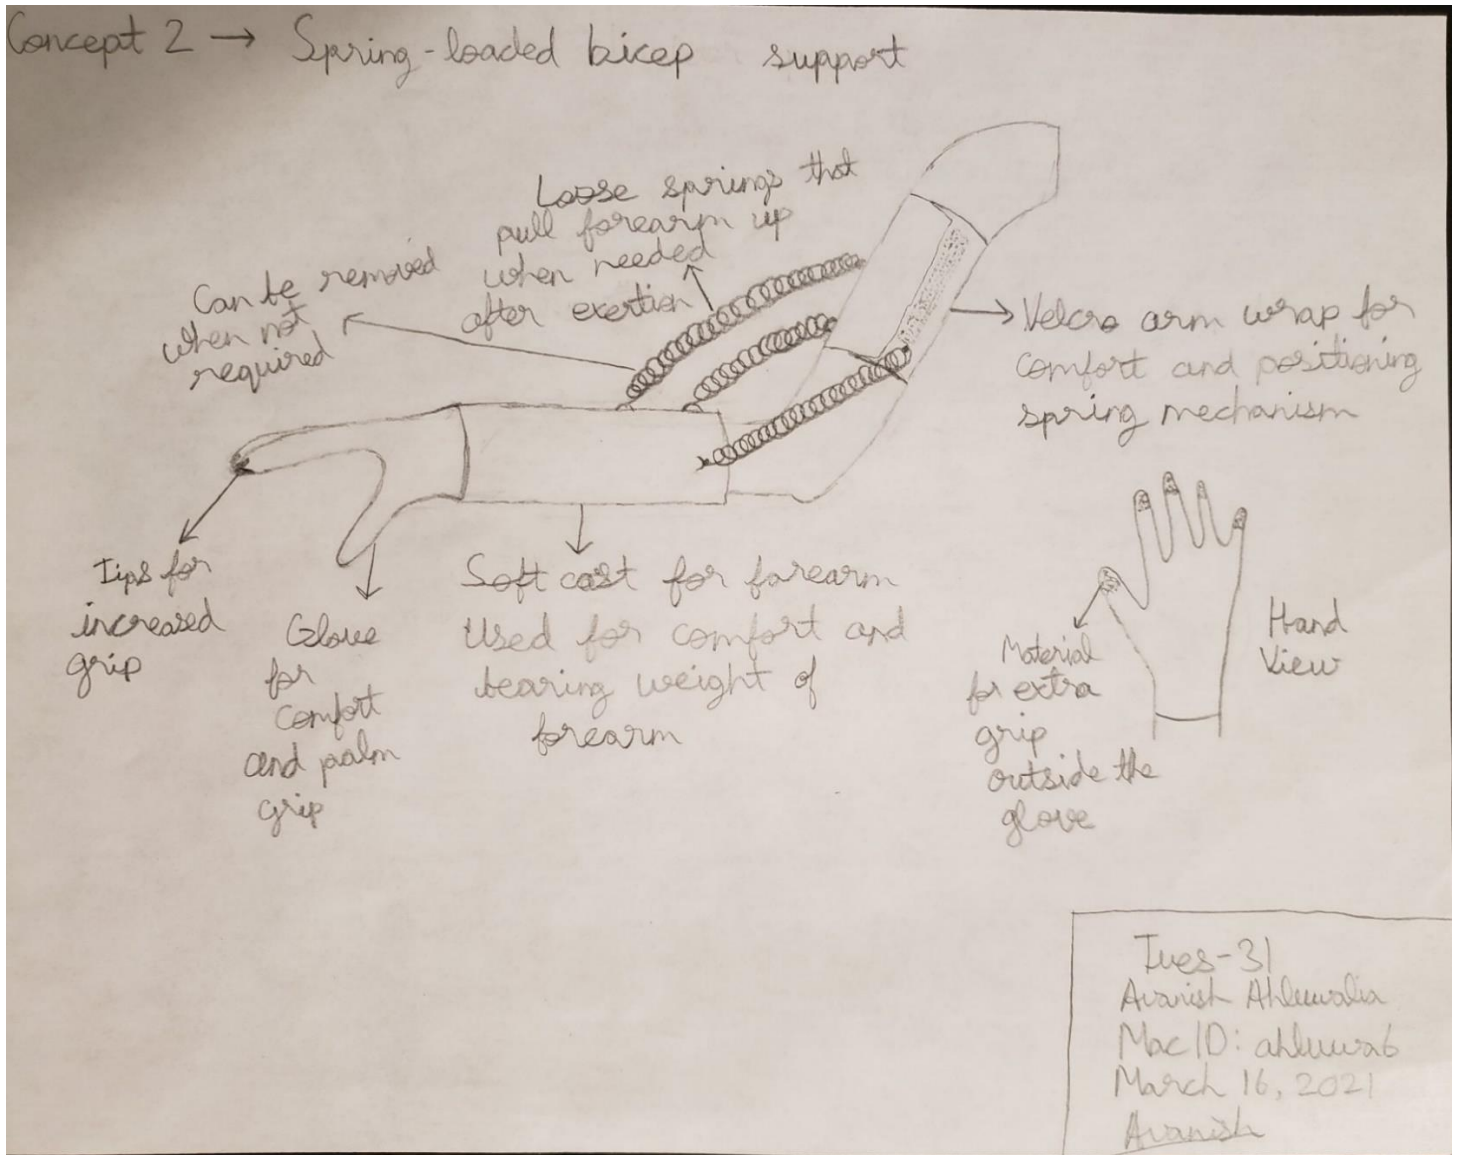 Concept 2 → Spring-loaded bicep support
Loose springs that
pull forearm up
when needed
after exertion
Can be removed
when not
required
Velcro arm wrap for
comfort and positioning
spring mechanism
Tips for
increased
grip
Glove
for
comfort
and palm
grip
Soft cast for forearm
Used for comfort and
bearing weight of
forearm
Material
for extra
grip
outside the
glove
Hand
View
Tues-31
Avanish Ahluwalia
Mac ID: ahluwa6
March 16, 2021
Avanish